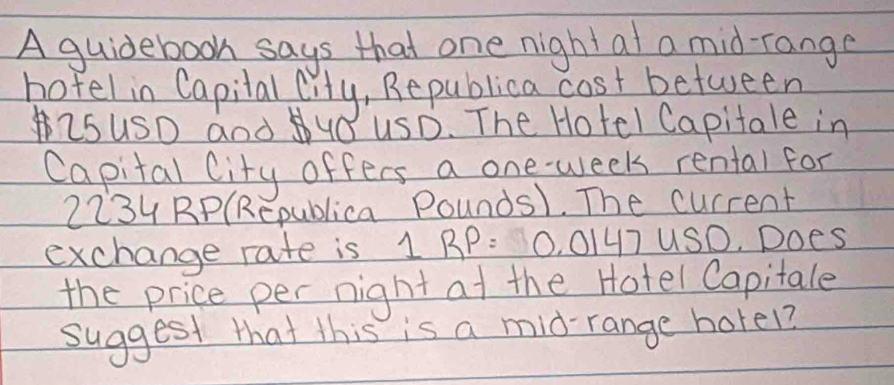 A guidebook says that one night at a mid-range
hotel in Capital City, Republica cost between
$25 USD and $40 USD. The Hotel Capitale in
Capital City offers a one-week rental for
2234 RP (Republica Pounds). The current
exchange rate is 1 RP = 0.0147 USD. Does
the price per night at the Hotel Capitale
suggest that this is a mid-range hotel?